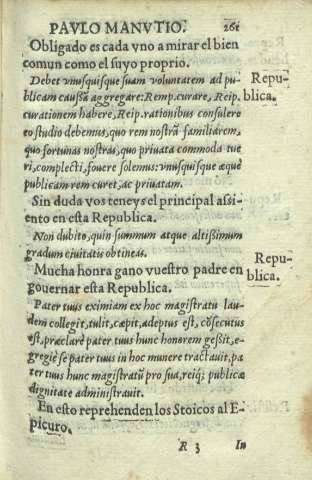 PAVLO MANVTIO. 261
Obligado es cada vno a mirar el bien
comun como el suyo proprio.
Debet vnusquisque suam voluntatem ad pu-
blicam caussã aggregare: Remp. curare, Reip.
curationem habere, Reip. rationibus consulere
eo studio debemus, quo rem nostrã familiarem,
quo fortunas nostras, quo priuata commoda tue
ri, complecti, fouere solemus: vnusquisque æquè
publicam rem curet, ac priuatam.
Repu-
blica.
Sin duda vos teneys el principal assi-
ento en esta Republica.
Non dubito, quin summum atque altissimum
gradum ciuitatis obtineas.
Mucha honra gano vuestro padre en
gouernar esta Republica.
Repu-
blica.
Pater tuus eximiam ex hoc magistratu lau-
dem collegit, tulit, cæpit, adeptus est, cõsecutus
est, præclarè pater tuus hunc honorem gessit, e-
gregiè se pater tuus in hoc munere tractauit, pa
ter tuus hunc magistratũ pro sua, reiq; publicæ
dignitate administrauit.
En esto reprehenden los Stoicos al E-
picuro.
R 3 In